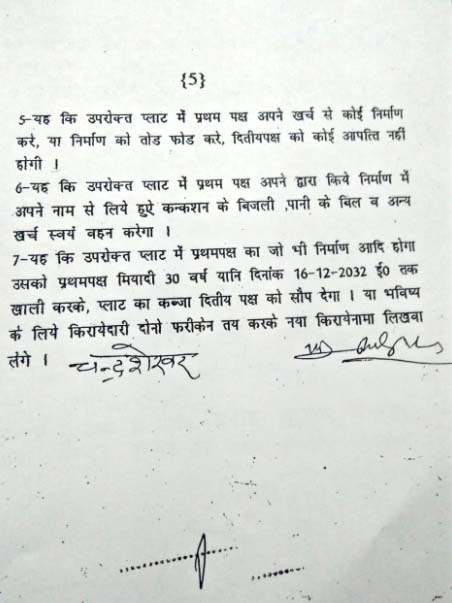 {5}
5-यह कि उपरोक्त प्लाट में प्रथम पक्ष अपने खर्च से कोई निर्माण
करे, या निर्माण को तोड फोड करे, दितीयपक्ष को कोई आपत्ति नहीं
होगी ।
6-यह कि उपरोक्त प्लाट में प्रथम पक्ष अपने द्वारा किये निर्माण में
अपने नाम से लिये हुऐ कन्कशन के बिजली ,पानी के बिल व अन्य
खर्च स्वयं वहन करेगा ।
7-यह कि उपरोक्त प्लाट में प्रथमपक्ष का जो भी निर्माण आदि होगा
उसको प्रथमपक्ष मियादी 30 वर्ष यानि दिनांक 16-12-2032 ई0 तक
खाली करके, प्लाट का कब्जा दितीय पक्ष को सौप देगा । या भविष्य
के लिये किरायेदारी दोनो फरीकेन तय करके नया किरायेनामा लिखवा
लेगे ।
चन्द्रशेखर